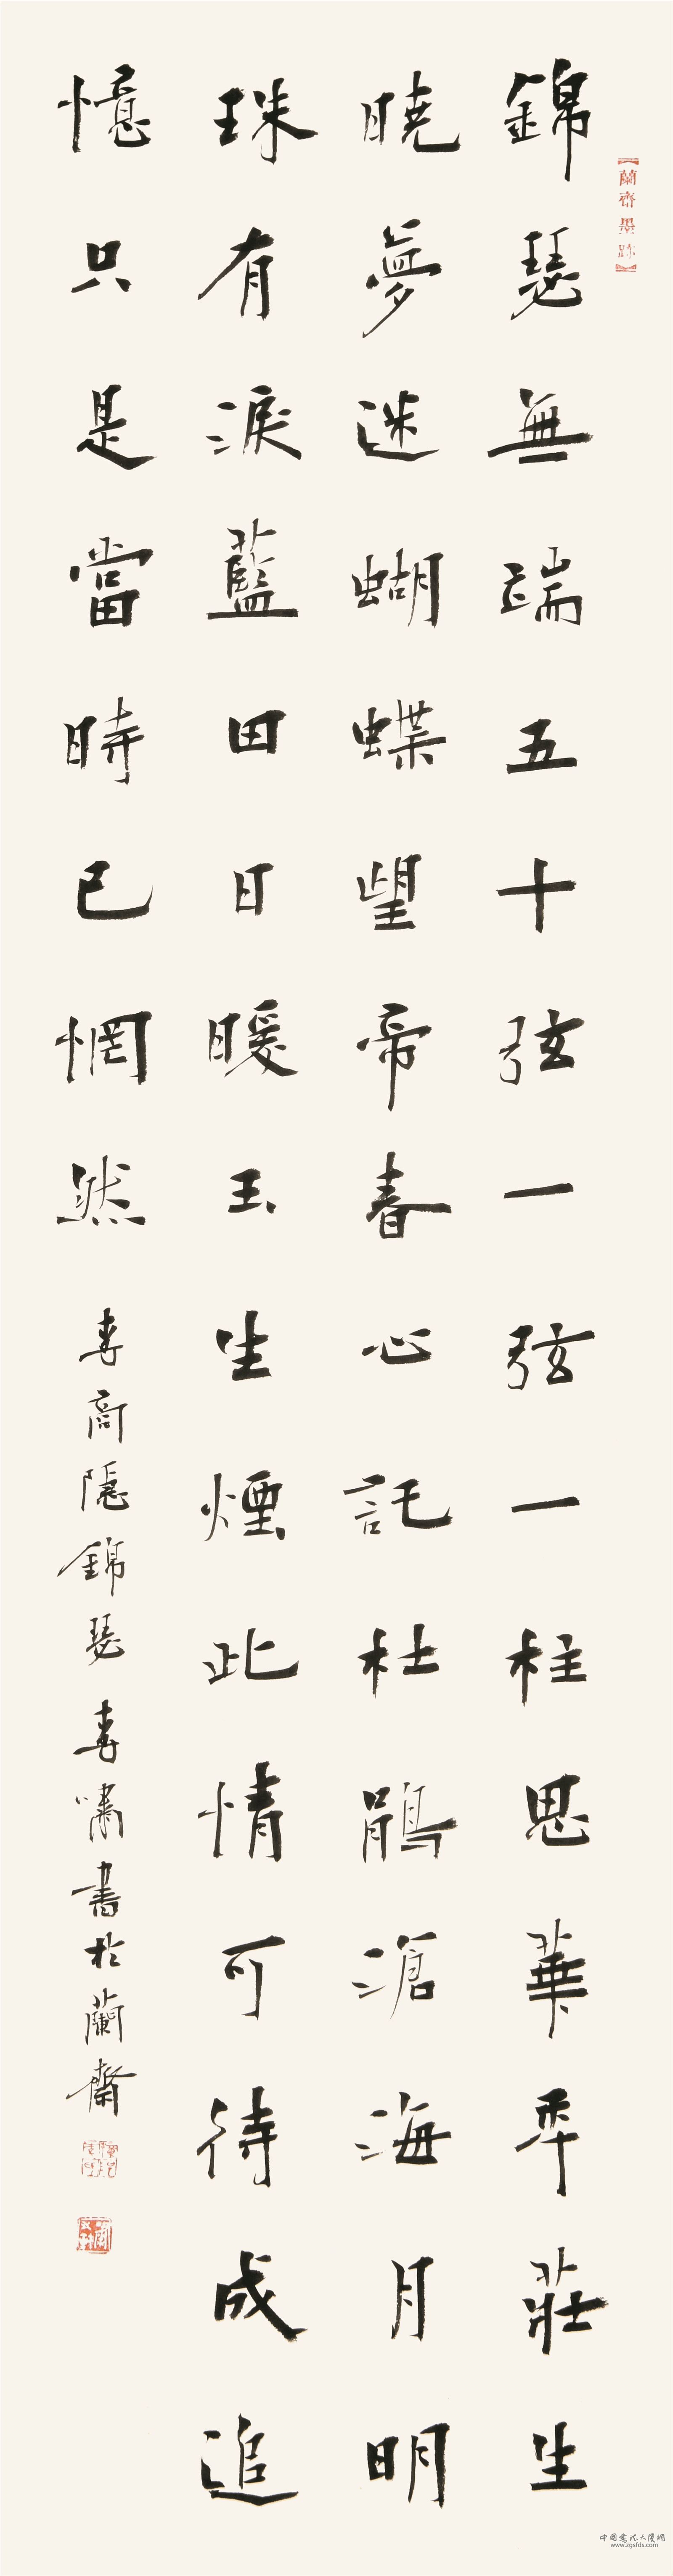 【蘭齊墨跡】
錦瑟無端五十弦一弦一柱思華年莊生
曉夢迷蝴蝶望帝春心託杜鵑滄海月明
珠有淚藍田日暖玉生煙此情可待成追
憶只是當時已惘然 李商隱錦瑟 李嘯書於蘭齋
中国书法大厦网
www.zgsfds.com